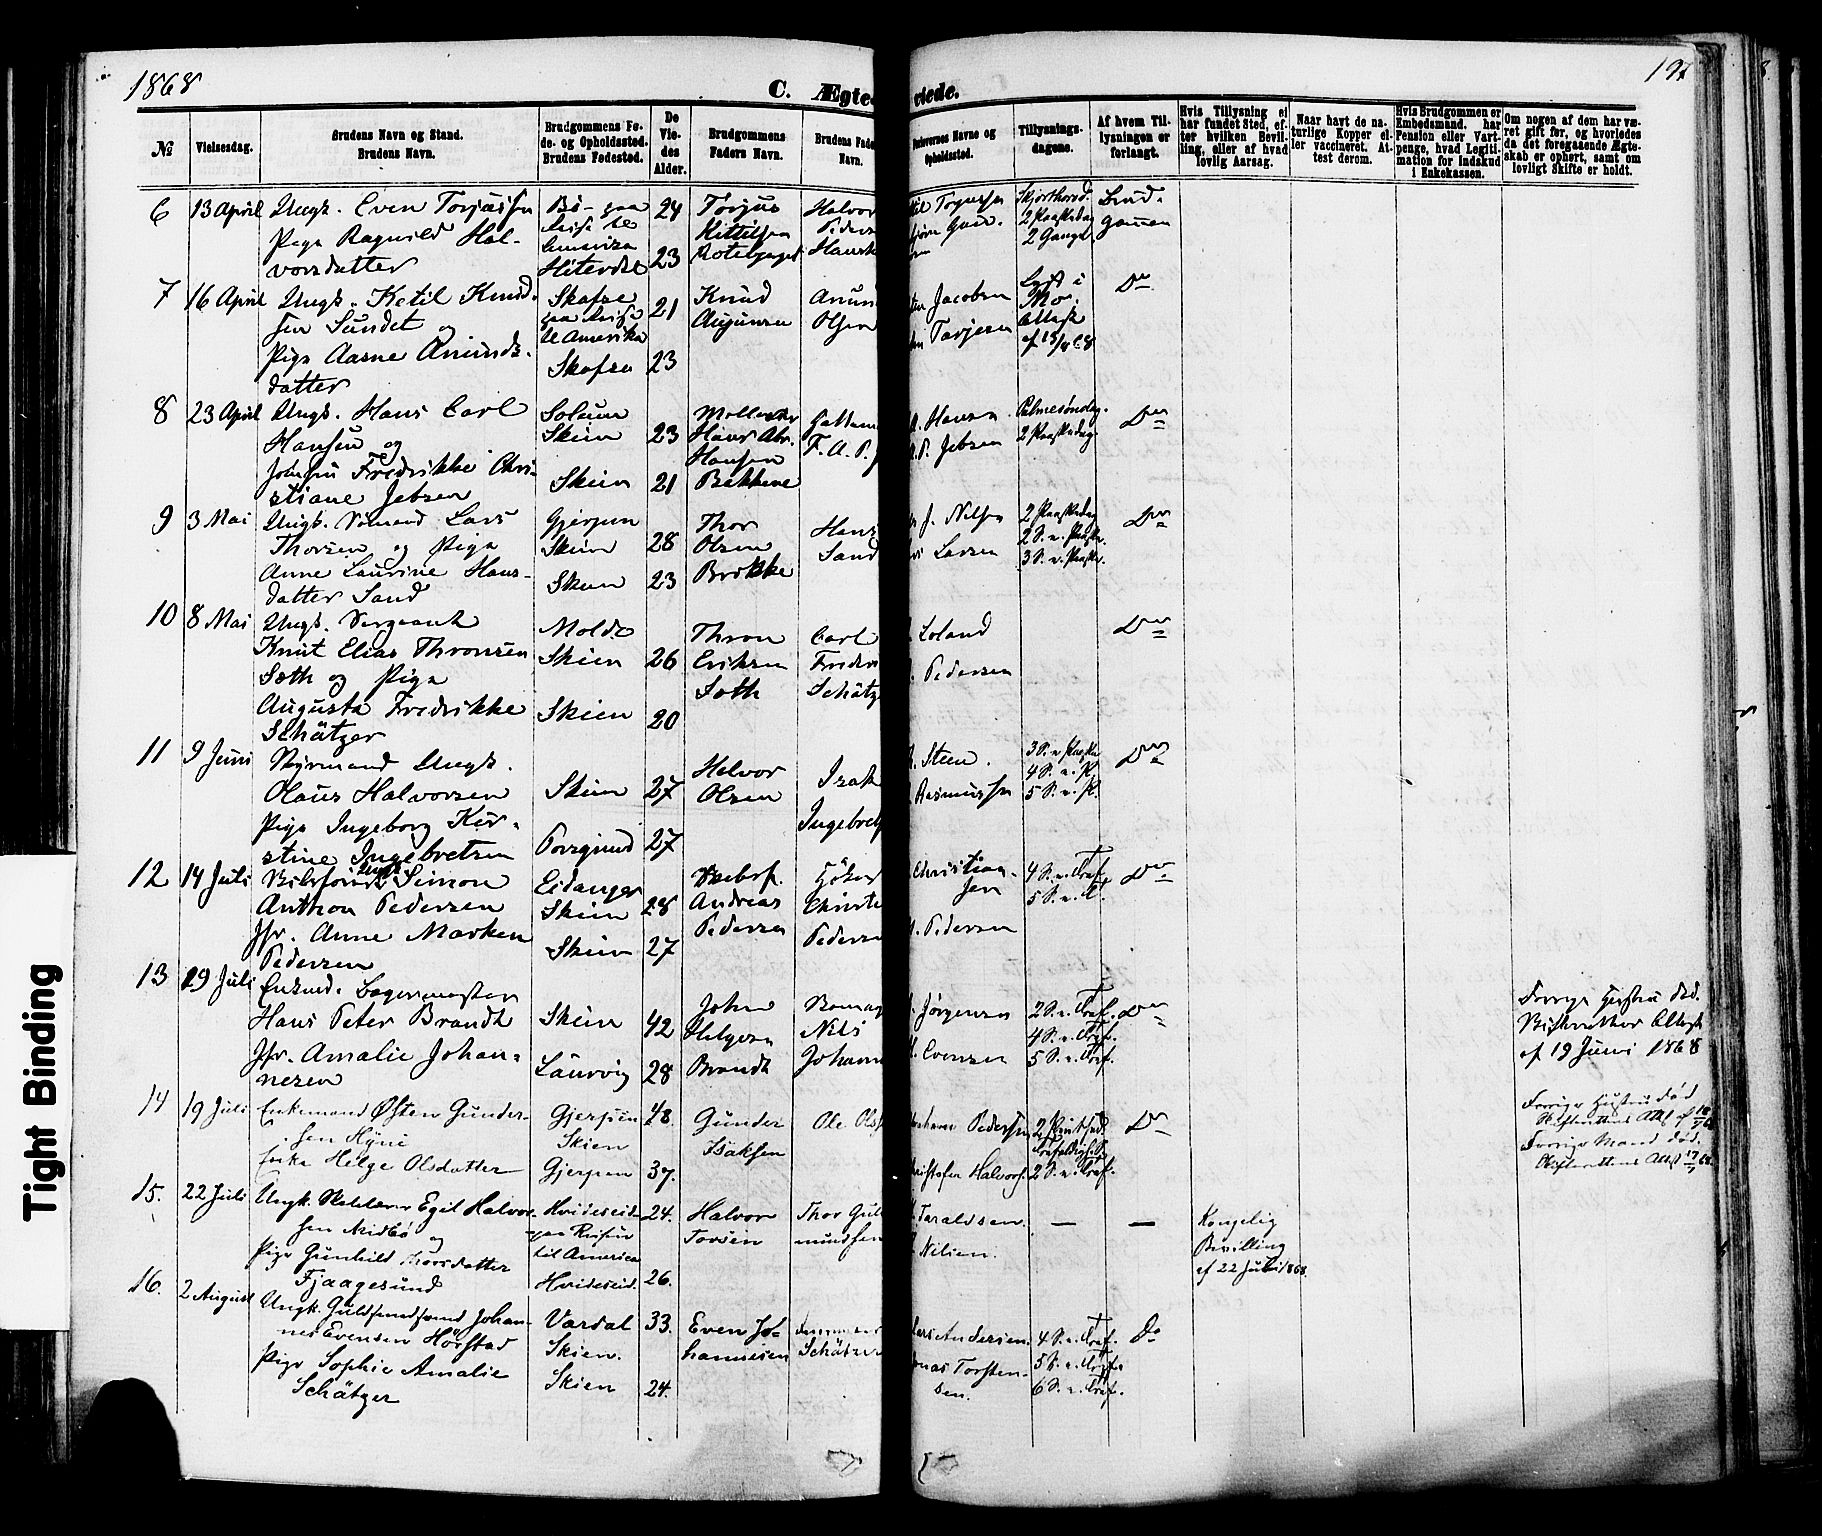 1868
C. Ægte
viede.
197
№
Vielsesdag.
Brudens Navn og Stand.
Brudens Navn.
Brudgommens Fø-
de- og Opholdssted.
Brudens Fødested.
De
Vie-
des
Alder.
Brudgommens
Faders Navn.
Brudens Fade
Navn.
Forlovernes Navne og
Opholdssted.
Tillysnings-
dagene.
Af hvem Til-
lysningen er
forlangt.
Hvis Tillysning ej
har fundet Sted, ef-
ter hvilken Bevil-
ling, eller af hvad
lovlig Aarsag.
Naar havt de na-
turlige Kopper el-
ler vaccineret. At-
test derom.
Hvis Brudgommen er
Embedsmand, har
Pension eller Vart-
penge, hvad Legiti-
mation for Indskud
i Enkekassen.
Om nogen af dem har væ-
ret gift før, og hvorledes
da det foregaaende Ægte-
skab er ophørt, samt om
lovligt Skifte er holdt.
6 13 April Ungk. Even Torjussen
Pige Ragnild Hal-
vorsdatter
Bö- paa
Reise til
Amerika
Hiterdal
24
23
Torjus
Kittilsen
Halvor
Peders
Brud-
gommen
2 Paaskedag
7 16 April Ungk. Ketil Knud-
sen Sundet og
Pige Aasne Anunds-
datter
Skafse
paa Reise
til Amerika
Skafse
21
23
Knud
Augunsen
Anun
Olsen
Jacobsen
Tarjesen
Lyst i
Mo.
Attest
af 13/4 68
Do
8 23 April Ungk. Hans Carl
Hansen og
Jomfru Fredrikke Chri-
stiane Jebsen
Solum
Skien
Skien
23
21
Hans Abr.
Hansen
Bakkene
F. A. P. J
Hansen
P. Jebsen
Palmesøndag.
2 Paaskedag.
Do
9 3 Mai Ungk. Sømand Lars
Thorsen og Pige
Anne Laurine Hans-
datter Sand
Gjerpen
Skien
Skien
28
23
Thor
Olsen
Brekke
Hans
Sand
J. Nilsen
Larsen
2 Paaskedag
2 S. e. Paaske.
3 S. e. Paaske.
Do
10 8 Mai Ungk. Sergeant
Knut Elias Thronsen
Sæth og Pige
Augusta Fredrikke
Schätzer
Molde
Skien
Skien
26
20
Thron
Eriksen
Sæth
Carl
Fredri
Schätze
Loland
Pedersen
Do
11 9 Juni Styrmand Ungk.
Olaus Halvorsen
Pige Ingeborg Kir-
stine Ingebretsen
Skien
Porsgrund
27
27
Halvor
Olsen
Isak
Ingebrets
Steen.
Rasmussen
3 S. e. Paaske
4 S. e. P.
5 S. e. P.
Do
12 14 Juli Ungk. Simon
Anthon Pedersen
Jfr. Anne Marken
Pedersen
Eidanger
Skien
Skien
28
27
Andreas
Pedersen
Christe
Pederse
Christian-
sen
Pedersen
4 S. e. Tref.
5 S. e. T.
Do
13 29 Juli Enkmd. Bagermester
Hans Peter Brandt
Jfr. Amalie Johan-
nesen
Skien
Laurvig
42
28
John
Helgesen
Brandt
Nils
Johann
Jørgensen
Evensen
2 S. e. Tref.
4 S. e. Tref.
5 S. e. Tref.
Do
Forrige Hustru död.
Skifteretten Attest
af 19 Juni 1868
14 19 Juli Enkemand Østen Gunder-
sen Hyni
Enke Helge Olsdatter
Gjerpen
Skien
Gjerpen
48.
37.
Gunder
Isaksen
Ole Ols
Pedersen
Christofer Halvors.
2 Pintsed.
Trefoldigh. S.
2 S. e. Tref.
Do
Forrige Hustru död
Skifterettens Att. af
Forrige Mand död.
Skifterettens Att.
15. 22 Juli Ungk. Egil Halvor-
sen Midbø og
Pige Gunhild Thorsdatter
Fjaagesund
Hvideseid-
paa Reisen
til America
Hvideseid.
24.
26.
Halvor
Torsen
Thor Gul
mundsen
Taraldsen.
Nilsen.
—
—
Kongelig
Bevilling
af 22 Juli 1868.
16. 2 August Ungk. Guldsmedsvend Johan-
nes Evensen Hörstad
Pige Sophie Amalie
Schätzer
Vardal
Skien.
Skien
33.
24.
Even Jo-
hannesen
Schätzer
Andersen.
Jonas Torsten-
sen.
4 S. e. Tref.
5 S. e. Tref.
6 S. e. Tref.
Do
Tight Binding